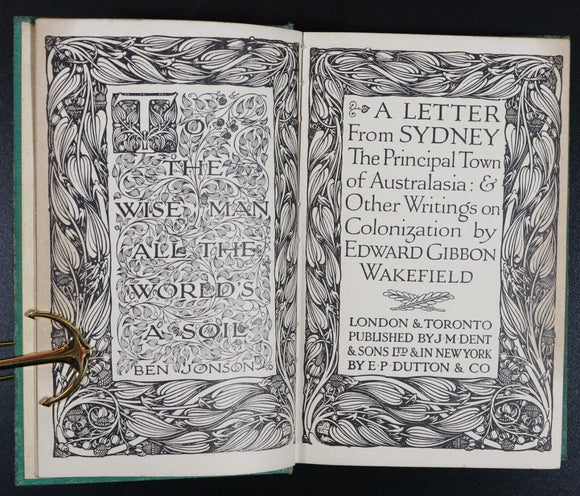 TO
THE
WISE MAN
ALL THE
WORLD'S
A SOIL
BEN JONSON
A LETTER
From SYDNEY
The Principal Town
of Australasia: &
Other Writings on
Colonization by
EDWARD GIBBON
WAKEFIELD
LONDON & TORONTO
PUBLISHED BY J·M·DENT
& SONS LTD & IN NEW YORK
BY E·P·DUTTON & CO